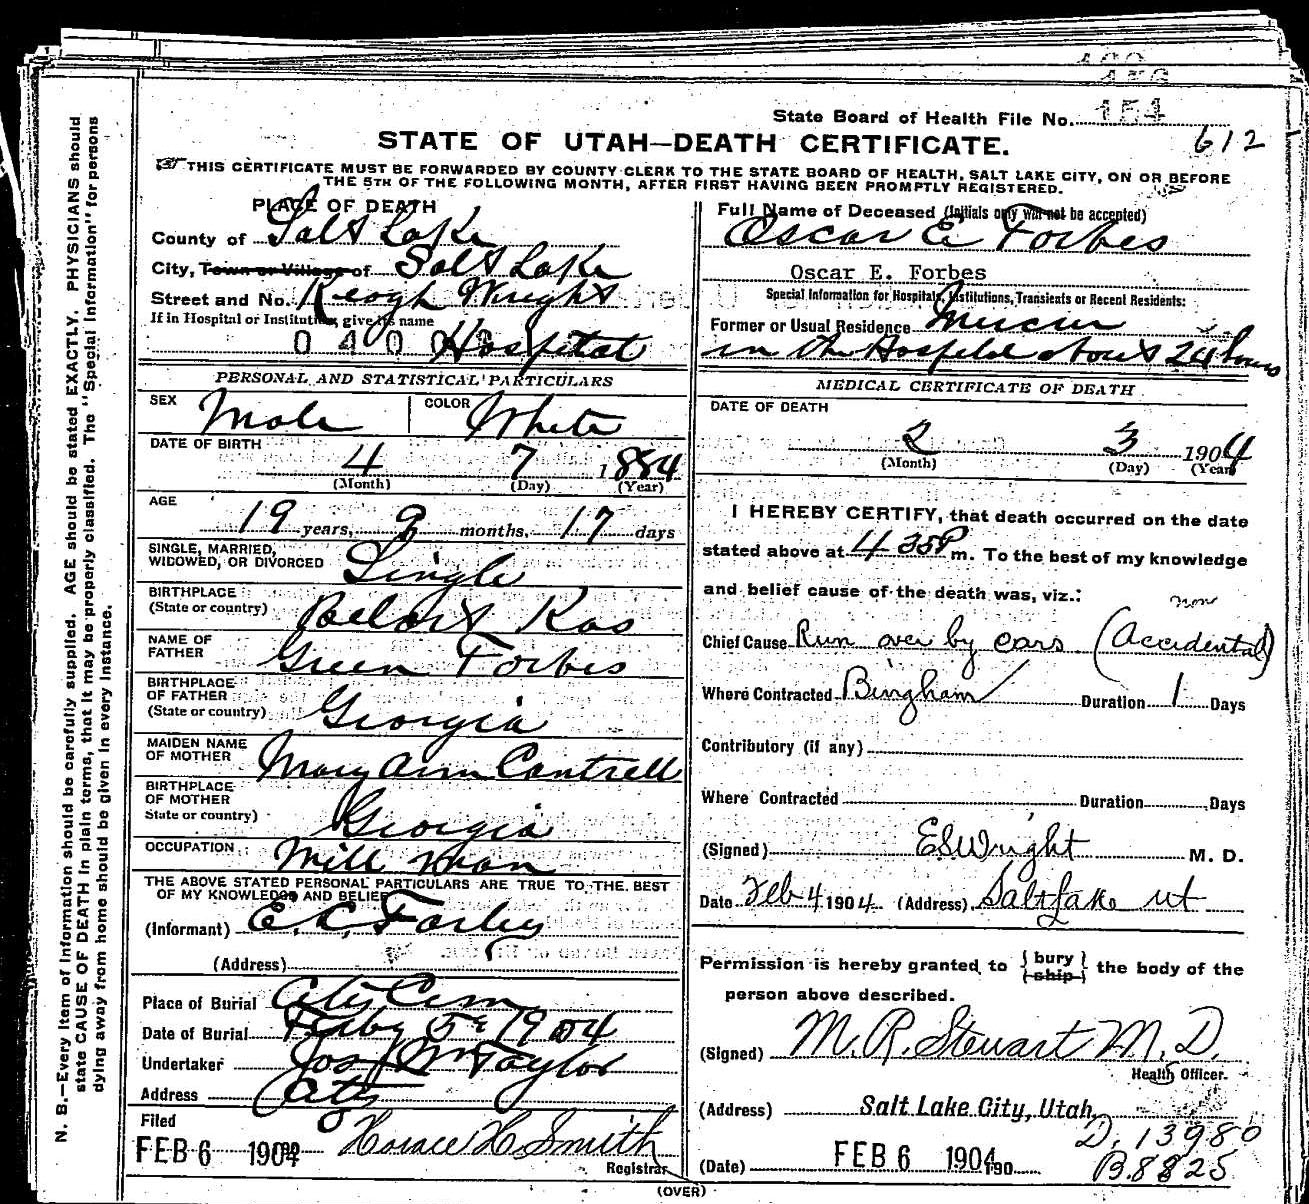 State Board of Health File No. 154
612
STATE OF UTAH—DEATH CERTIFICATE.
THIS CERTIFICATE MUST BE FORWARDED BY COUNTY CLERK TO THE STATE BOARD OF HEALTH, SALT LAKE CITY, ON OR BEFORE
THE 5TH OF THE FOLLOWING MONTH, AFTER FIRST HAVING BEEN PROMPTLY REGISTERED.
N. B.—Every item of information should be carefully supplied. AGE should be stated EXACTLY. PHYSICIANS should
state CAUSE OF DEATH in plain terms, that it may be properly classified. The "Special Information" for persons
dying away from home should be given in every instance.
PLACE OF DEATH
County of Salt Lake
City, Town or Village of Salt Lake
Street and No. Keogh Wright
If in Hospital or Institution, give its name
Hospital
PERSONAL AND STATISTICAL PARTICULARS
SEX Male COLOR White
DATE OF BIRTH
4 7 1884
(Month) (Day) (Year)
AGE
19 years, 9 months, 17 days
SINGLE, MARRIED,
WIDOWED, OR DIVORCED Single
BIRTHPLACE
(State or country) Beloit Kas
NAME OF
FATHER Green Forbes
BIRTHPLACE
OF FATHER
(State or country) Georgia
MAIDEN NAME
OF MOTHER Mary Ann Cantrell
BIRTHPLACE
OF MOTHER
State or country) Georgia
OCCUPATION Mill man
THE ABOVE STATED PERSONAL PARTICULARS ARE TRUE TO THE BEST
OF MY KNOWLEDGE AND BELIEF
(Informant) E. C. Forbes
(Address)
Place of Burial City Cem
Date of Burial Feby 5 1904
Undertaker Jos Wm Taylor
Address City
Filed
FEB 6 1904 Horace H. Smith
Registrar
Full Name of Deceased (Initials only will not be accepted)
Oscar E. Forbes
Oscar E. Forbes
Special Information for Hospitals, Institutions, Transients or Recent Residents:
Former or Usual Residence Mercur
in the Hospital about 24 hours
MEDICAL CERTIFICATE OF DEATH
DATE OF DEATH
2 3 1904
(Month) (Day) (Year)
I HEREBY CERTIFY, that death occurred on the date
stated above at 4 35 P m. To the best of my knowledge
and belief cause of the death was, viz.:
Chief Cause Run over by cars (Accidental)
Where Contracted Bingham Duration 1 Days
Contributory (if any)
Where Contracted Duration Days
(Signed) ES Wright M. D.
Date Feb 4 1904 (Address) Salt Lake Ut
Permission is hereby granted to {bury ship} the body of the
person above described.
(Signed) M. R. Stewart M. D.
Health Officer.
(Address) Salt Lake City, Utah,
D. 13980
(Date) FEB 6 1904 190
B. 8825
(OVER)